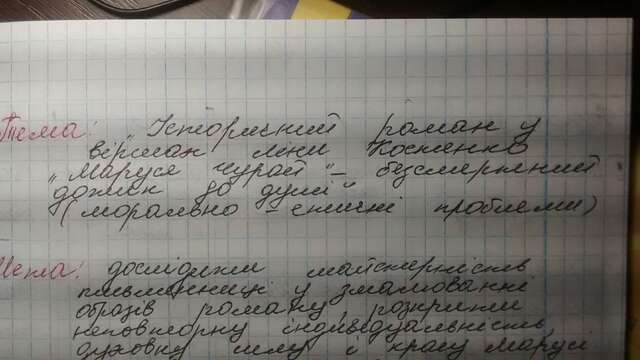 Тема: „Історичний роман у
віршах Ліни Костенко
„Маруся Чурай" – безсмертний
дотик до душі"
(морально – етичні проблеми)
Мета: дослідити майстерність
письменниці у змалюванні
образів роману, розкрити
неповторну індивідуальність
духовну силу і красу Марусі